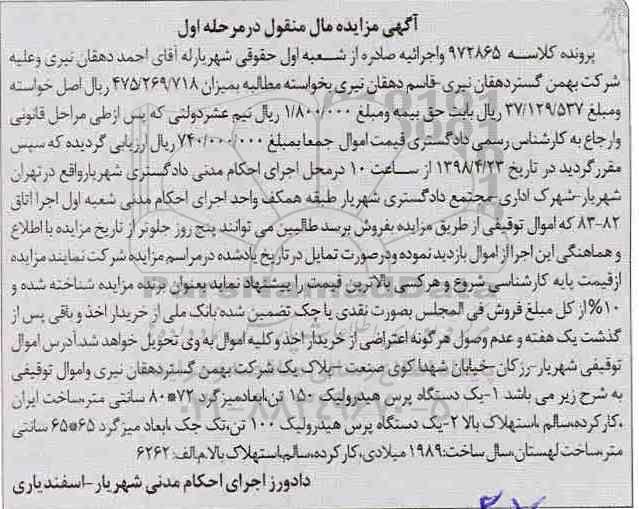 آگهی مزایده مال منقول درمرحله اول
پرونده کلاسه ۹۷۲۸۶۵ واجرائیه صادره از شعبه اول حقوقی شهریارله آقای احمد دهقان نیری وعلیه
شرکت بهمن گستردهقان نیری -قاسم دهقان نیری بخواسته مطالبه بمیزان ۴۷۵/۲۶۹/۷۱۸ ریال اصل خواسته
ومبلغ ۳۷/۱۲۹/۵۳۷ ریال بابت حق بیمه ومبلغ ۱/۸۰۰/۰۰۰ ریال نیم عشردولتی که پس ازطی مراحل قانونی
وارجاع به کارشناس رسمی دادگستری قیمت اموال جمعا بمبلغ ۷۴۰/۰۰۰/۰۰۰ ریال ارزیابی گردیده که سپس
مقررگردید در تاریخ ۱۳۹۸/۴/۲۳ از ساعت ۱۰ درمحل اجرای احکام مدنی دادگستری شهریارواقع درتهران
شهریار-شهرک اداری-مجتمع دادگستری شهریار طبقه همکف واحد اجرای احکام مدنی شعبه اول اجرا اتاق
۸۳-۸۲ که اموال توقیفی از طریق مزایده بفروش برسد طالبین می توانند پنج روز جلوتر از تاریخ مزایده با اطلاع
و هماهنگی این اجرا از اموال بازدید نموده ودرصورت تمایل درتاریخ یادشده درمراسم مزایده شرکت نمایند مزایده
ازقیمت پایه کارشناسی شروع و هرکسی بالاترین قیمت را پیشنهاد نماید بعنوان برنده مزایده شناخته شده و
۱۰%از کل مبلغ فروش فی المجلس بصورت نقدی یا چک تضمین شده بانک ملی از خریدار اخذ و باقی پس از
گذشت یک هفته و عدم وصول هرگونه اعتراضی از خریدار اخذ و کلیه اموال به وی تحویل خواهد شد.آدرس اموال
توقیفی شهریار-رزکان-خیابان شهدا کوی صنعت -پلاک یک شرکت بهمن گستردهقان نیری واموال توقیفی
به شرح زیر می باشد ۱-یک دستگاه پرس هیدرولیک ۱۵۰ تن،ابعادمیزگرد ۷۲*۸۰ سانتی متر،ساخت ایران
،کارکرده،سالم ،استهلاک بالا ۲-یک دستگاه پرس هیدرولیک ۱۰۰ تن،تک جک ،ابعاد میزگرد ۶۵*۶۵ سانتی
متر،ساخت لهستان،سال ساخت:۱۹۸۹ میلادی،کارکرده،سالم،استهلاک بالا.م.الف: ۶۲۶۲
دادورز اجرای احکام مدنی شهریار-اسفندیاری